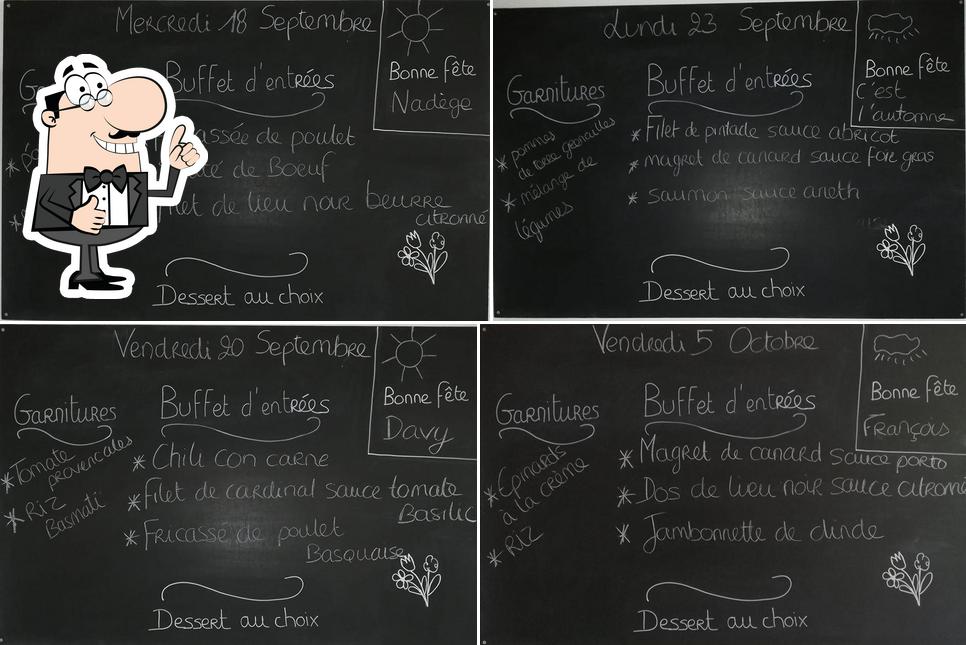 Mercredi 18 Septembre
Bonne fête
Nadège
Buffet d'entrées
assée de poulet
de Boeuf
let de lieu noir beurre
citronné
Dessert au choix
Lundi 23 Septembre
Bonne fête
C'est
l'automne
GARNITURES
* pommes
de terre grenailles
* mélange de
légumes
Buffet d'entrées
* Filet de pintade sauce abricot
* magret de canard sauce foie gras
* saumon sauce aneth
Dessert au choix
Vendredi 20 Septembre
Bonne fête
Davy
GARNITURES
* Tomate
provençales
* RIZ
Basmati
Buffet d'entrées
* Chili con carne
* Filet de cardinal sauce tomate
Basilic
* Fricasse de poulet
Basquaise
Dessert au choix
Vendredi 5 Octobre
Bonne fête
François
GARNITURES
* Epinards
à la crème
* RIZ
Buffet d'entrées
* Magret de canard sauce porto
* Dos de lieu noir sauce citronné
* Jambonnette de dinde
Dessert au choix